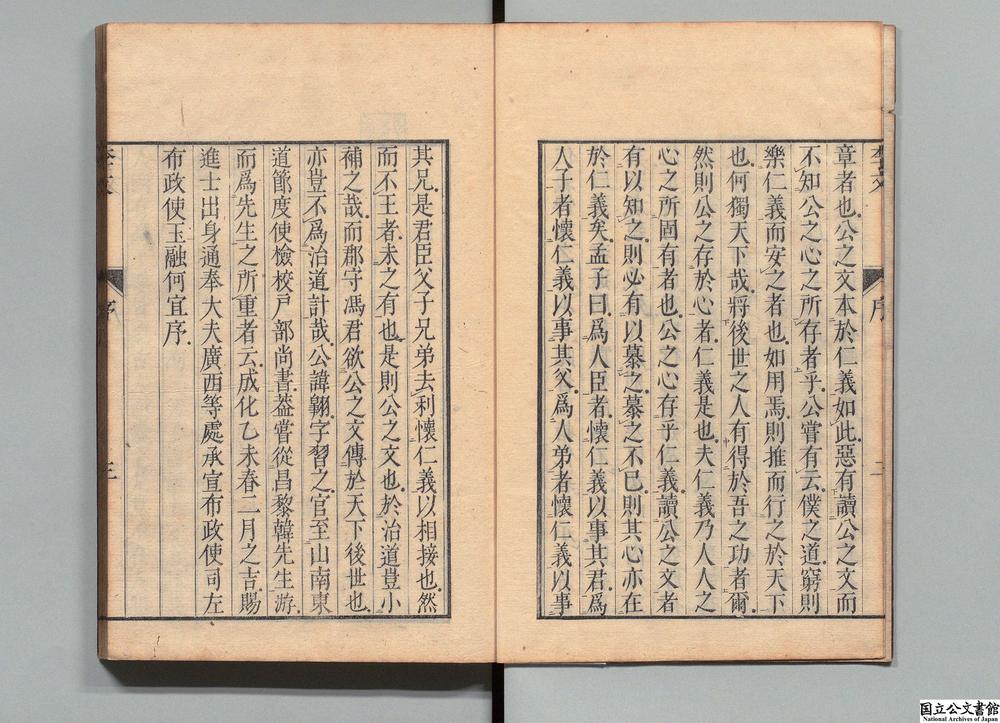 章者也公之文本於仁義如此惡有讀公之文而
不知公之心之所存者乎公嘗有云僕之道窮則
樂仁義而安之者也如用焉則推而行之於天下
也何獨天下哉將後世之人有得於吾之功者爾
然則公之存於心者仁義是也夫仁義乃人人之
心之所固有者也公之心存乎仁義讀公之文者
有以知之則必有以慕之慕之不已則其心亦在
於仁義矣孟子曰爲人臣者懷仁義以事其君爲
人子者懷仁義以事其父爲人弟者懷仁義以事
序
二
其兄是君臣父子兄弟去利懷仁義以相接也然
而不王者未之有也是則公之文也於治道豈小
補之哉而郡守馮君欲公之文傳於天下後世也
亦豈不爲治道計哉公諱翱字習之官至山南東
道節度使檢校戸部尚書葢嘗從昌黎韓先生游
而爲先生之所重者云成化乙未春二月之吉賜
進士出身通奉大夫廣西等處承宣布政使司左
布政使玉融何宜序
序
三
国立公文書館
National Archives of Japan